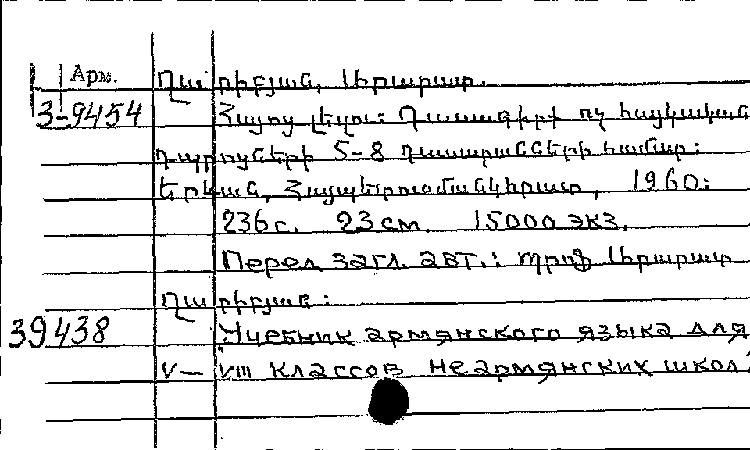 Арм. Ղարիբյան, Արարատ.
3-9454 Հայոց լեզու: Դասագիրք ոչ հայկական
դպրոցների 5-8 դասարանների համար:
Երևան, Հայպետուսմանկհրատ, 1960:
236 с. 23 см. 15000 экз.
Перед загл. авт.: պրոֆ. Արարատ
Ղարիբյան:
39438 Учебник армянского языка для
V— VIII классов неармянских школ.